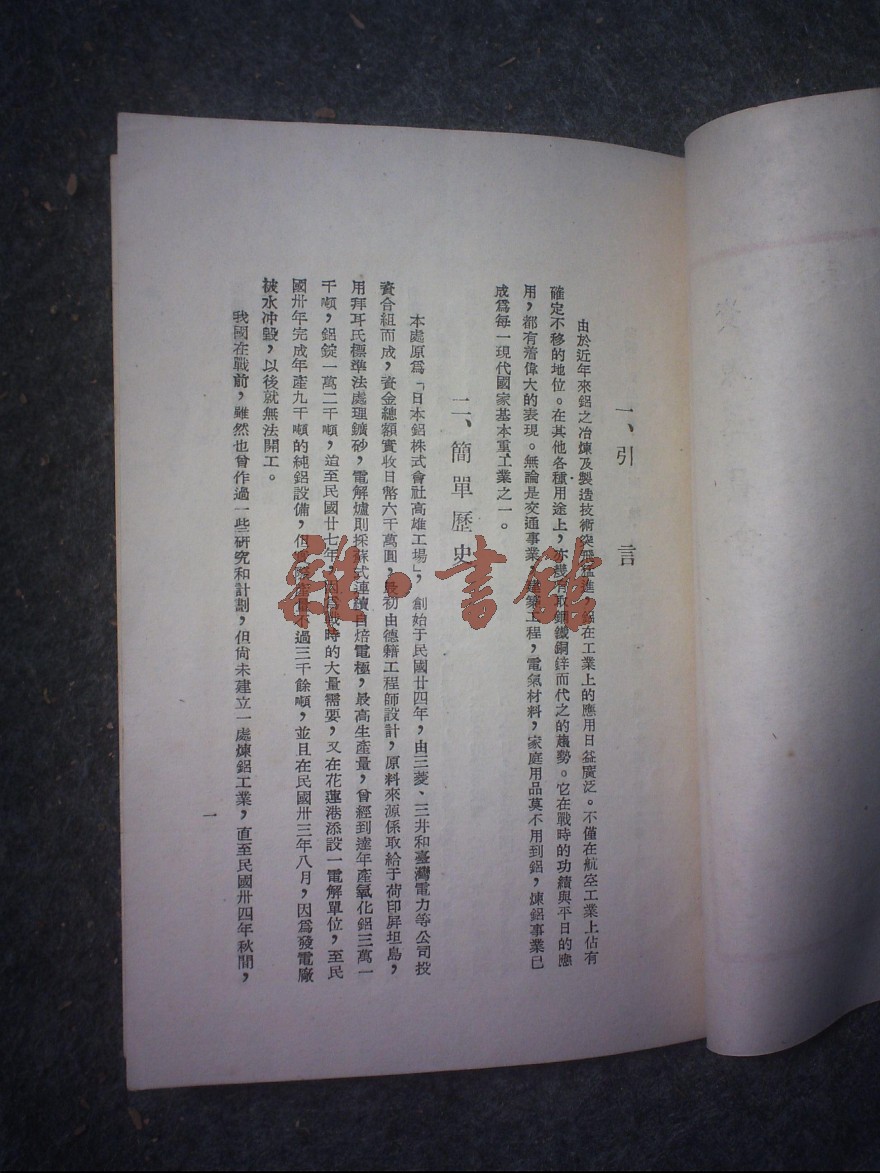 一、引 言
由於近年來鋁之冶煉及製造技術突飛猛進，在工業上的應用日益廣泛。不僅在航空工業上佔有
確定不移的地位。在其他各種用途上，亦幾有取鋼鐵銅鋅而代之的趨勢。它在戰時的功績與平日的應
用，都有着偉大的表現。無論是交通事業，建築工程，電氣材料，家庭用品莫不用到鋁，煉鋁事業已
成爲每一現代國家基本重工業之一。
二、簡單歷史
本處原爲「日本鋁株式會社高雄工場」，創始于民國廿四年，由三菱、三井和臺灣電力等公司投
資合組而成，資金總額實收日幣六千萬圓，最初由德籍工程師設計，原料來源係取給于荷印屏坦島，
用拜耳氏標準法處理鑛砂，電解爐則採蘇式連續自焙電極，最高生產量，曾經到達年產氧化鋁三萬一
千噸，鋁錠一萬二千噸，迨至民國廿七年，因爲戰時的大量需要，又在花蓮港添設一電解單位，至民
國卅年完成年產九千噸的純鋁設備，但不過三千餘噸，並且在民國卅三年八月，因爲發電廠
被水冲毀，以後就無法開工。
我國在戰前，雖然也曾作過一些研究和計劃，但尙未建立一處煉鋁工業，直至民國卅四年秋間，
一
雜·書館